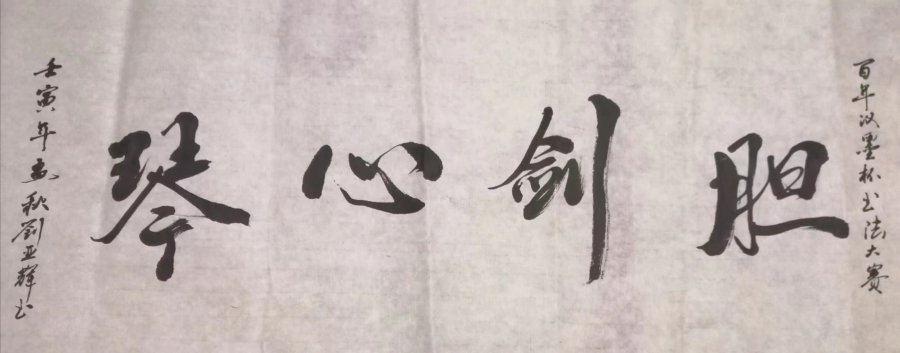 百年汉墨杯书法大赛
胆剑心琴
壬寅年孟秋刘亚辉书